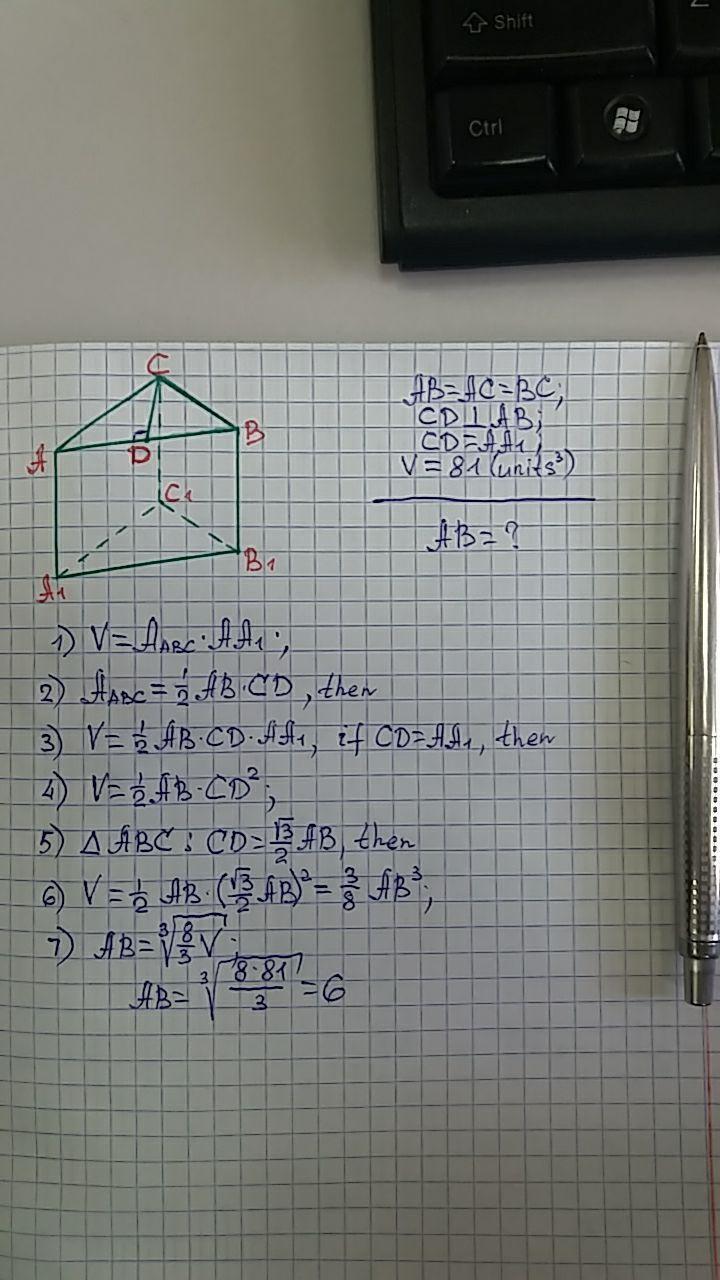 Shift
Ctrl
C
A
D
B
C₁
A₁
B₁
AB=AC=BC;
CD⊥AB;
CD=AA₁;
V=81 (units³)
AB=?
1) V=A_ABC·AA₁;
2) A_ABC=½AB·CD, then
3) V=½AB·CD·AA₁, if CD=AA₁, then
4) V=½AB·CD²;
5) ΔABC: CD=√3/2 AB, then
6) V=½ AB·(√3/2 AB)²=3/8 AB³;
7) AB=∛(8/3 V);
AB=∛(8·81/3)=6